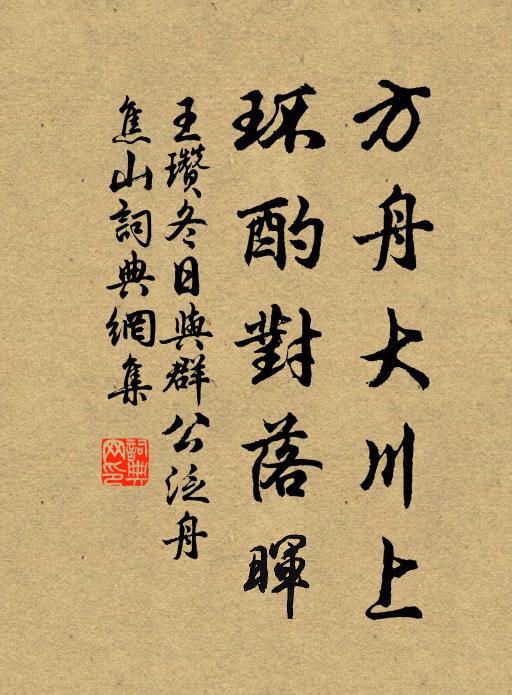 方舟大川上
環酌對落暉
王瓚冬日與群公泛舟
焦山詞典網集
詞典網印